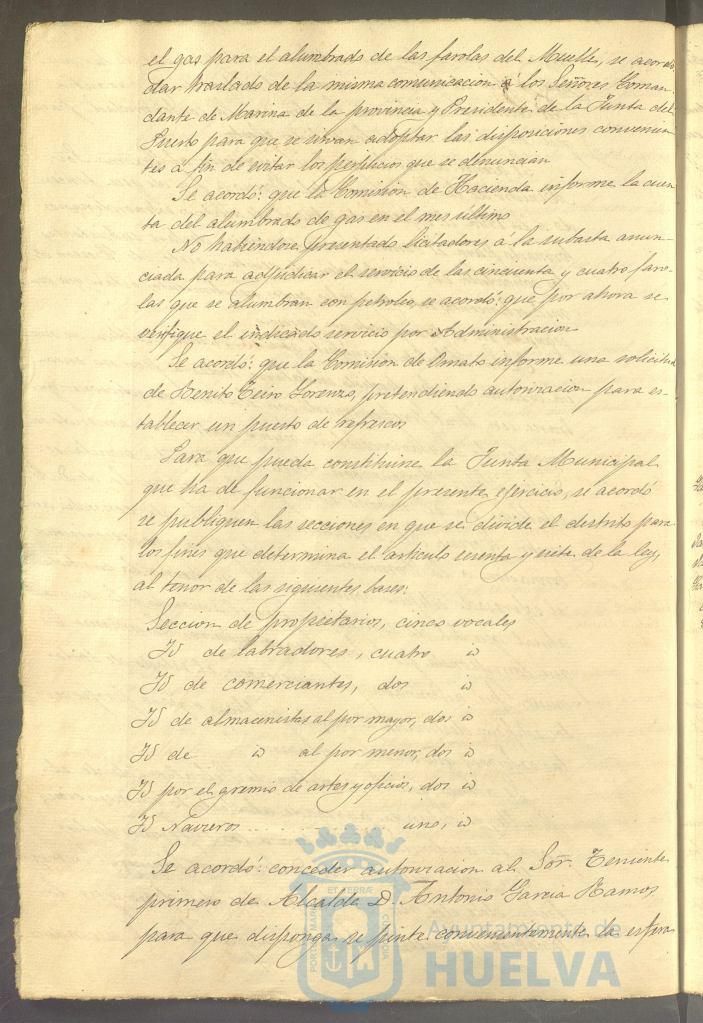 el gas para el alumbrado de las farolas del Muelle, se acordó
dar traslado de la misma comunicacion á los Señores Coman-
dante de Marina de la provincia y Presidente de la Junta del
Puerto para que se sirvan adoptar las disposiciones convenien-
tes a fin de evitar los perjuicios que se denuncian
Se acordó: que la Comision de Hacienda informe la cuen-
ta del alumbrado de gas en el mes ultimo
No habiendose presentado licitadores á la subasta anun-
ciada para adjudicar el servicio de las cincuenta y cuatro faro-
las que se alumbran con petroleo, se acordó: que por ahora se
verifique el indicado servicio por Administracion
Se acordó: que la Comision de Ornato informe una solicitud
de Benito Lorenzo, pretendiendo autorizacion para es-
tablecer un puesto de refrescos
Para que pueda constituirse la Junta Municipal
que ha de funcionar en el presente ejercicio, se acordó
se publiquen las secciones en que se divide el distrito para
los fines que determina el articulo sesenta y siete de la ley,
al tenor de las siguientes bases:
Seccion de propietarios, cinco vocales
Id de labradores, cuatro id
Id de comerciantes, dos id
Id de almacenistas al por mayor, dos id
Id de id al por menor, dos id
Id por el gremio de artes y oficios, dos id
Id Navieros . . . . uno, id
Se acordó: conceder autorizacion al Sor. Teniente
primero de Alcalde D. Antonio Garcia Ramos
para que disponga se pinte convenientemente la esfera
Ayuntamiento de
HUELVA